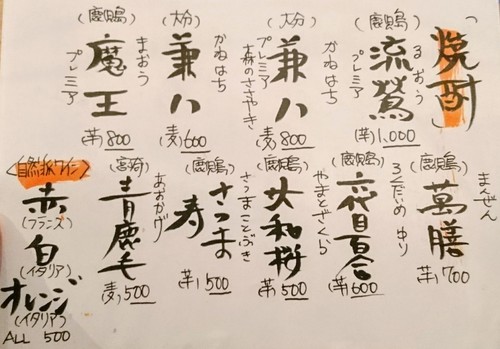 「焼酎」
(鹿児島)
流鶯
るおう
(芋)1,000
(大分)
兼八
かねはち
プレミア
森のささやき
(麦)800
(大分)
兼八
かねはち
(麦)600
(鹿児島)
魔王
まおう
プレミア
(芋)800
(鹿児島)
萬膳
まんぜん
(芋)700
(鹿児島)
六代目百合
ろくだいめ ゆり
(芋)600
(鹿児島)
大和桜
やまとざくら
(芋)500
(鹿児島)
さつま寿
さつまことぶき
(芋)500
(宮崎)
青鹿毛
あおかげ
(麦)500
〈自然派ワイン〉
赤
(フランス)
白
(イタリア)
オレンジ
(イタリア)
ALL 500